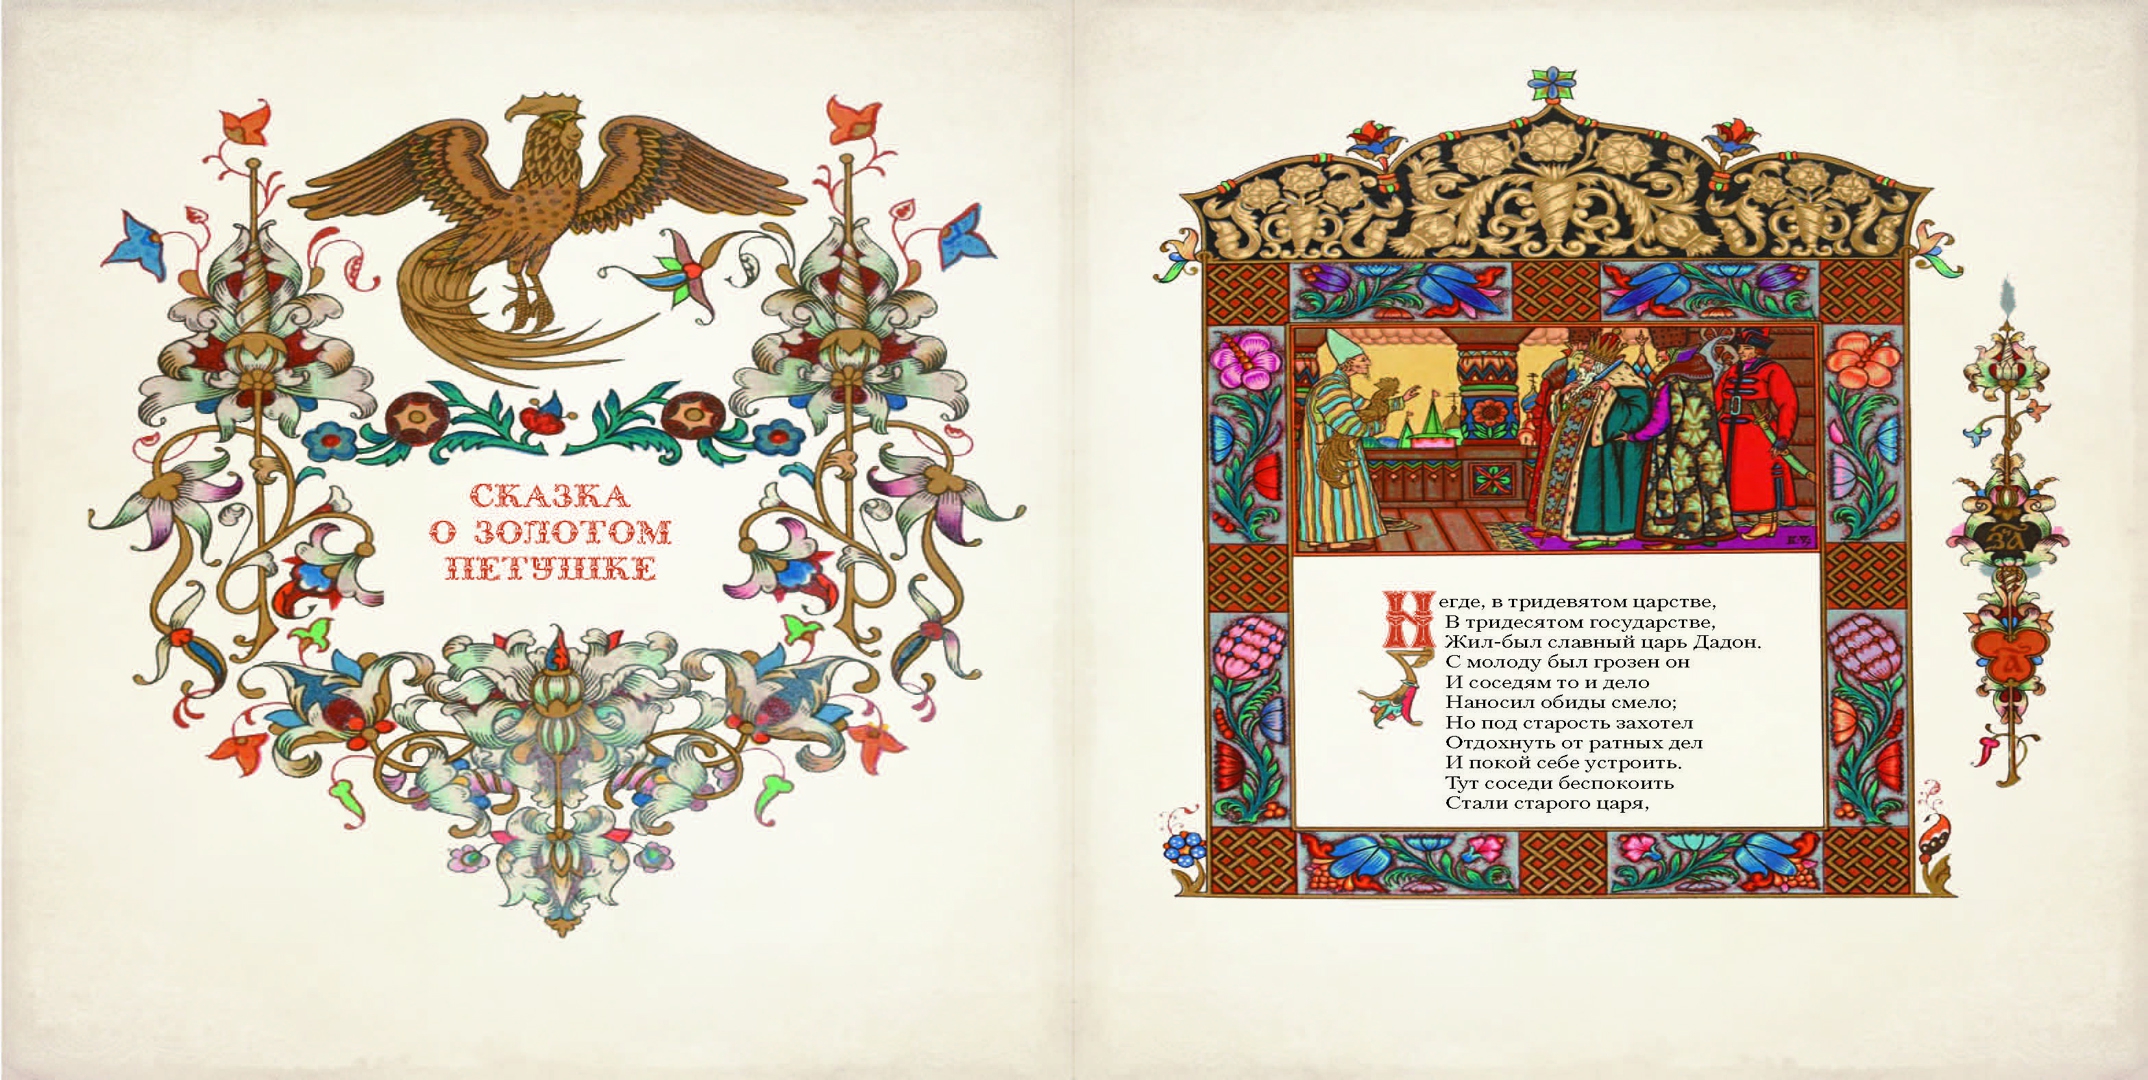 СКАЗКА
О ЗОЛОТОМ
ПЕТУШКЕ
Негде, в тридевятом царстве,
В тридесятом государстве,
Жил-был славный царь Дадон.
С молоду был грозен он
И соседям то и дело
Наносил обиды смело;
Но под старость захотел
Отдохнуть от ратных дел
И покой себе устроить.
Тут соседи беспокоить
Стали старого царя,